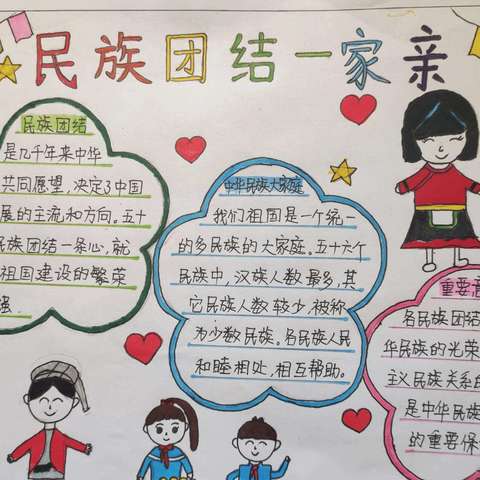 民族团结一家亲
民族团结
是几千年来中华
共同愿望,决定了中国
展的主流和方向。五十
民族团结一条心,就
祖国建设的繁荣
强
中华民族大家庭
我们祖国是一个统一
的多民族的大家庭。五十六个
民族中,汉族人数最多,其
它民族人数较少,被称
为少数民族。各民族人民
和睦相处,相互帮助。
重要意
各民族团结
华民族的光荣
主义民族关系的
是中华民族
的重要保